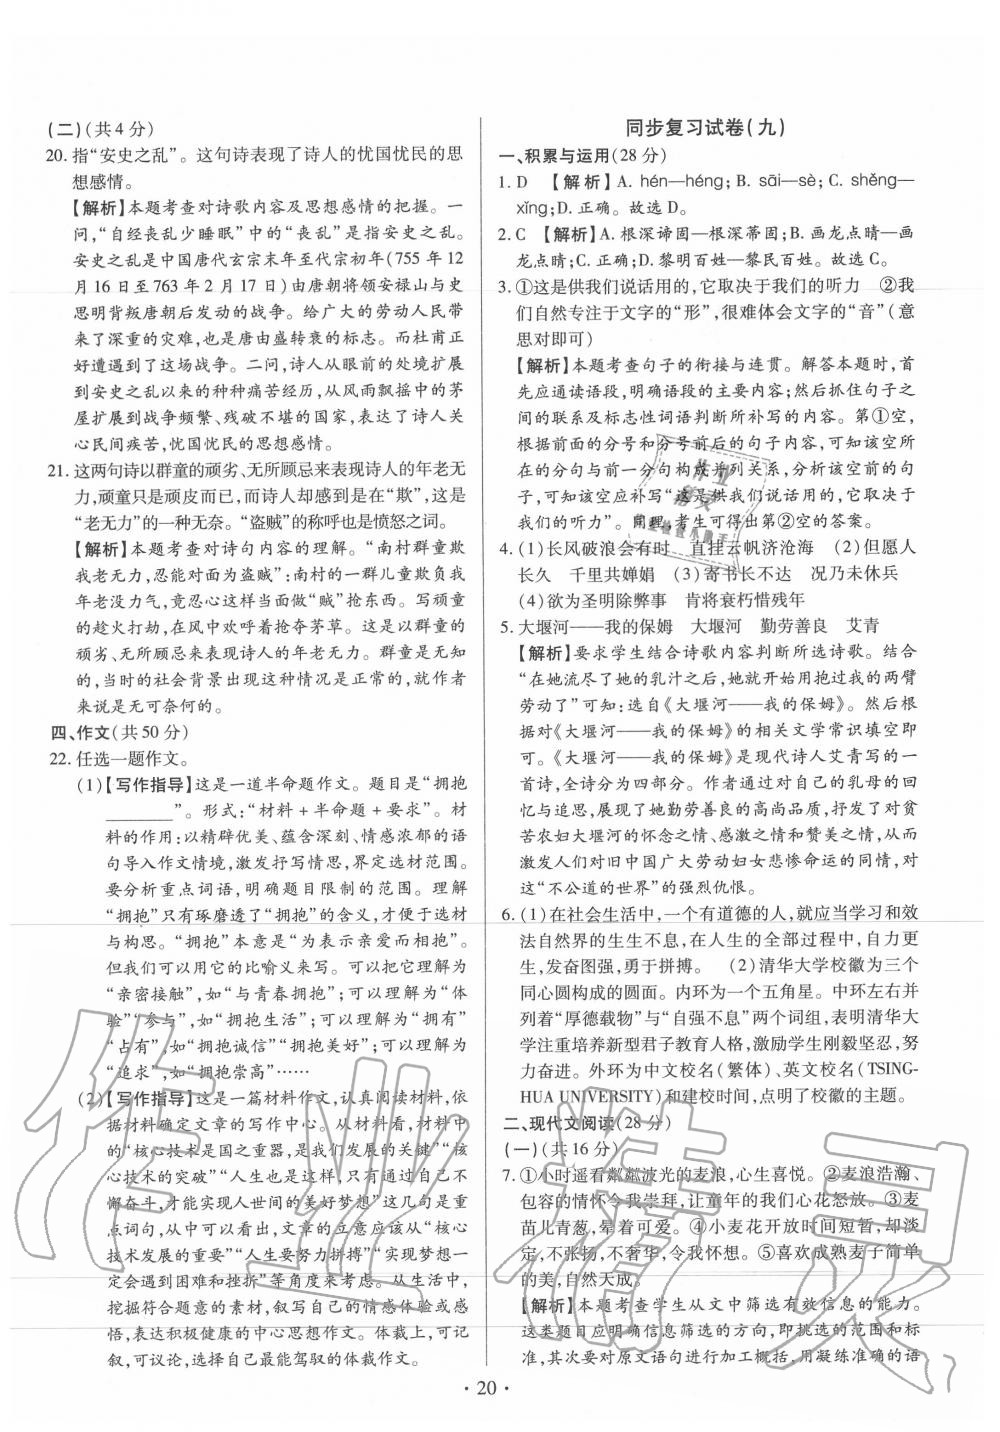 (二)(共4分)
20. 指“安史之乱”。这句诗表现了诗人的忧国忧民的思
想感情。
【解析】本题考查对诗歌内容及思想感情的把握。一
问,“自经丧乱少睡眠”中的“丧乱”是指安史之乱。
安史之乱是中国唐代玄宗末年至代宗初年(755年12
月16日至763年2月17日)由唐朝将领安禄山与史
思明背叛唐朝后发动的战争。给广大的劳动人民带
来了深重的灾难,也是唐由盛转衰的标志。而杜甫正
好遭遇到了这场战争。二问,诗人从眼前的处境扩展
到安史之乱以来的种种痛苦经历,从风雨飘摇中的茅
屋扩展到战争频繁、残破不堪的国家,表达了诗人关
心民间疾苦,忧国忧民的思想感情。
21. 这两句诗以群童的顽劣、无所顾忌来表现诗人的年老无
力,顽童只是顽皮而已,而诗人却感到是在“欺”,这是
“老无力”的一种无奈。“盗贼”的称呼也是愤怒之词。
【解析】本题考查对诗句内容的理解。“南村群童欺
我老无力,忍能对面为盗贼”:南村的一群儿童欺负我
年老没力气,竟忍心这样当面做“贼”抢东西。写顽童
的趁火打劫,在风中欢呼着抢夺茅草。这是以群童的
顽劣、无所顾忌来表现诗人的年老无力。群童是无知
的,当时的社会背景出现这种情况是正常的,就作者
来说是无可奈何的。
四、作文(共50分)
22. 任选一题作文。
(1)【写作指导】这是一道半命题作文。题目是“拥抱
________”。形式:“材料+半命题+要求”。材
料的作用:以精辟优美、蕴含深刻、情感浓郁的语
句导入作文情境,激发抒写情思,界定选材范围。
要分析重点词语,明确题目限制的范围。理解
“拥抱”只有琢磨透了“拥抱”的含义,才便于选材
与构思。“拥抱”本意是“为表示亲爱而相抱”。
但我们可以用它的比喻义来写。可以把它理解为
“亲密接触”,如“与青春拥抱”;可以理解为“体
验”“参与”,如“拥抱生活”;可以理解为“拥有”
“占有”,如“拥抱诚信”“拥抱美好”;可以理解为
“追求”,如“拥抱崇高”……
(2)【写作指导】这是一篇材料作文,认真阅读材料,依
据材料确定文章的写作中心。从材料看,材料中
的“核心技术是国之重器,是我们发展的关键”“核
心技术的突破”“人生也是这样,只有通过自己不
懈奋斗,才能实现人世间的美好梦想”这几句是重
点词句,从中可以看出,文章的立意应该从“核心
技术发展的重要”“人生要努力拼搏”“实现梦想一
定会遇到困难和挫折”等角度来考虑。从生活中,
挖掘符合题意的素材,叙写自己的情感体验或感
悟,表达积极健康的中心思想作文。体裁上,可记
叙,可议论,选择自己最能驾驭的体裁作文。
同步复习试卷(九)
一、积累与运用(28分)
1. D 【解析】A. hén—héng; B. sāi—sè; C. shěng—
xǐng; D. 正确。故选D。
2. C 【解析】A. 根深谛固—根深蒂固; B. 画龙点晴—画
龙点睛; D. 黎明百姓—黎民百姓。故选C。
3. ①这是供我们说话用的,它取决于我们的听力 ②我
们自然专注于文字的“形”,很难体会文字的“音”(意
思对即可)
【解析】本题考查句子的衔接与连贯。解答本题时,首
先应通读语段,明确语段的主要内容;然后抓住句子之
间的联系及标志性词语判断所补写的内容。第①空,
根据前面的分号和分号前后的句子内容,可知该空所
在的部分与前一分句构成并列关系,分析该空前的句
子,可知该空应补写“这是供我们说话用的,它取决于
我们的听力”。同理,考生可得出第②空的答案。
4. (1)长风破浪会有时 直挂云帆济沧海 (2)但愿人
长久 千里共婵娟 (3)寄书长不达 况乃未休兵
(4)欲为圣明除弊事 肯将衰朽惜残年
5. 大堰河——我的保姆 大堰河 勤劳善良 艾青
【解析】要求学生结合诗歌内容判断所选诗歌。结合
“在她流尽了她的乳汁之后,她就用抱过我的两臂
劳动了”可知:选自《大堰河——我的保姆》。然后根
据《大堰河——我的保姆》的相关文学常识填空即
可。《大堰河——我的保姆》是现代诗人艾青写的一
首诗,全诗分为四部分。作者通过对自己的乳母的回
忆与追思,展现了她勤劳善良的高尚品质,抒发了对贫
苦农妇大堰河的怀念之情、感激之情和赞美之情,从而
激发人们对旧中国广大劳动妇女悲惨命运的同情,对
这“不公道的世界”的强烈仇恨。
6. (1)在社会生活中,一个有道德的人,就应当学习和效
法自然界的生生不息,在人生的全部过程中,自力更
生,发奋图强,勇于拼搏。 (2)清华大学校徽为三个
同心圆构成的圆面。内环为一个五角星。中环左右并
列着“厚德载物”与“自强不息”两个词组,表明清华大
学注重培养新型君子教育人格,激励学生刚毅坚忍,努
力奋进。外环为中文校名(繁体)、英文校名(TSING-
HUA UNIVERSITY)和建校时间,点明了校徽的主题。
二、现代文阅读(28分)
(一)(共16分)
7. ①小时遥看粼粼波光的麦浪,心生喜悦。②麦浪浩瀚、
包容的情怀令我崇拜,让童年的我们心花怒放。③麦
苗儿青葱,晕着可爱。④小麦花开放时间短暂,却淡
定,不张扬,不奢华,令我怀想。⑤喜欢成熟麦子简单
的美,自然天成。
【解析】本题考查学生从文中筛选有效信息的能力。
这类题目应明确信息筛选的方向,即挑选的范围和标
准,其次要对原文语句进行加工概括,用凝练准确的语
· 20 ·
作业精灵